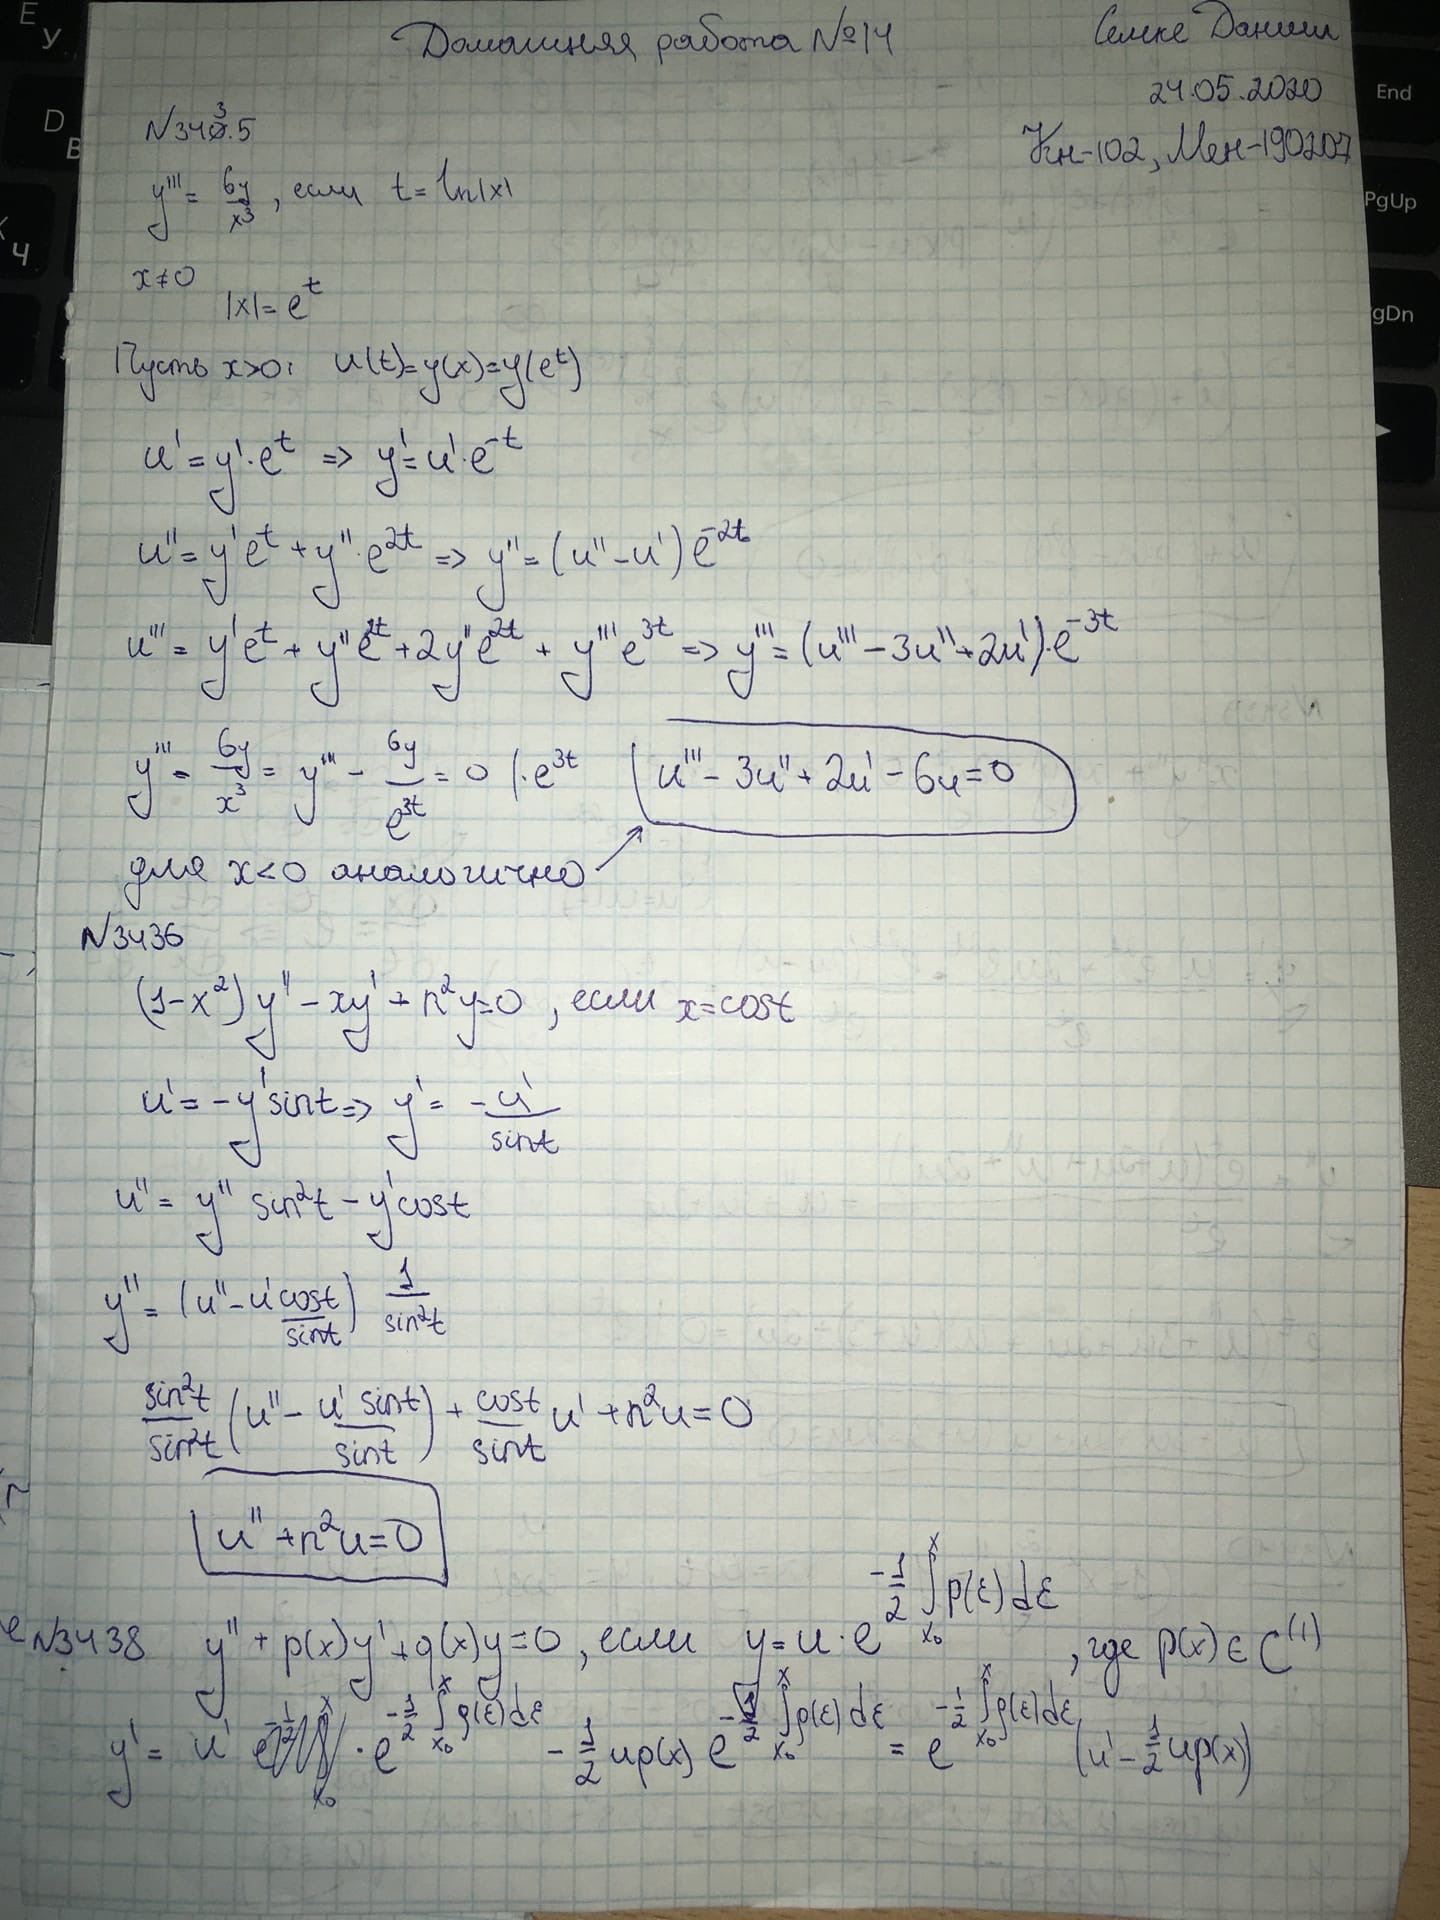 Домашняя работа №14
Семке Даниил
24.05.2020
КН-102, Мен-190207
N 3435
y''' = 6y/x³, если t = ln|x|
x≠0
|x| = e^t
Пусть x>0: u(t)=y(x)=y(e^t)
u' = y'·e^t => y' = u'·e^-t
u'' = y'e^t + y''·e^2t => y'' = (u''-u')e^-2t
u''' = y'e^t + y''e^2t + 2y''e^2t + y'''e^3t => y''' = (u'''-3u''+2u')·e^-3t
y''' = 6y/x³ = y''' - 6y/e^3t = 0 |·e^3t
u''' - 3u'' + 2u' - 6u = 0
для x<0 аналогично
N 3436
(1-x²)y'' - xy' + n²y = 0, если x = cost
u' = -y'sint => y' = -u'/sint
u'' = y'' sin²t - y'cost
y'' = (u'' - u'cost/sint) 1/sin²t
sin²t/sin²t (u'' - u' sint/sint) + cost/sint u' + n²u = 0
u'' + n²u = 0
N 3438 y'' + p(x)y' + q(x)y = 0, если y = u·e^(-1/2 ∫_x₀^x p(ε)dε), где p(x) ∈ C^(1)
y' = u' ·e^(-1/2 ∫_x₀^x p(ε)dε) - 1/2 up(x) e^(-1/2 ∫_x₀^x p(ε)dε) = e^(-1/2 ∫_x₀^x p(ε)dε) (u' - 1/2 up(x))
End
PgUp
gDn
E
У
D
В
Ч